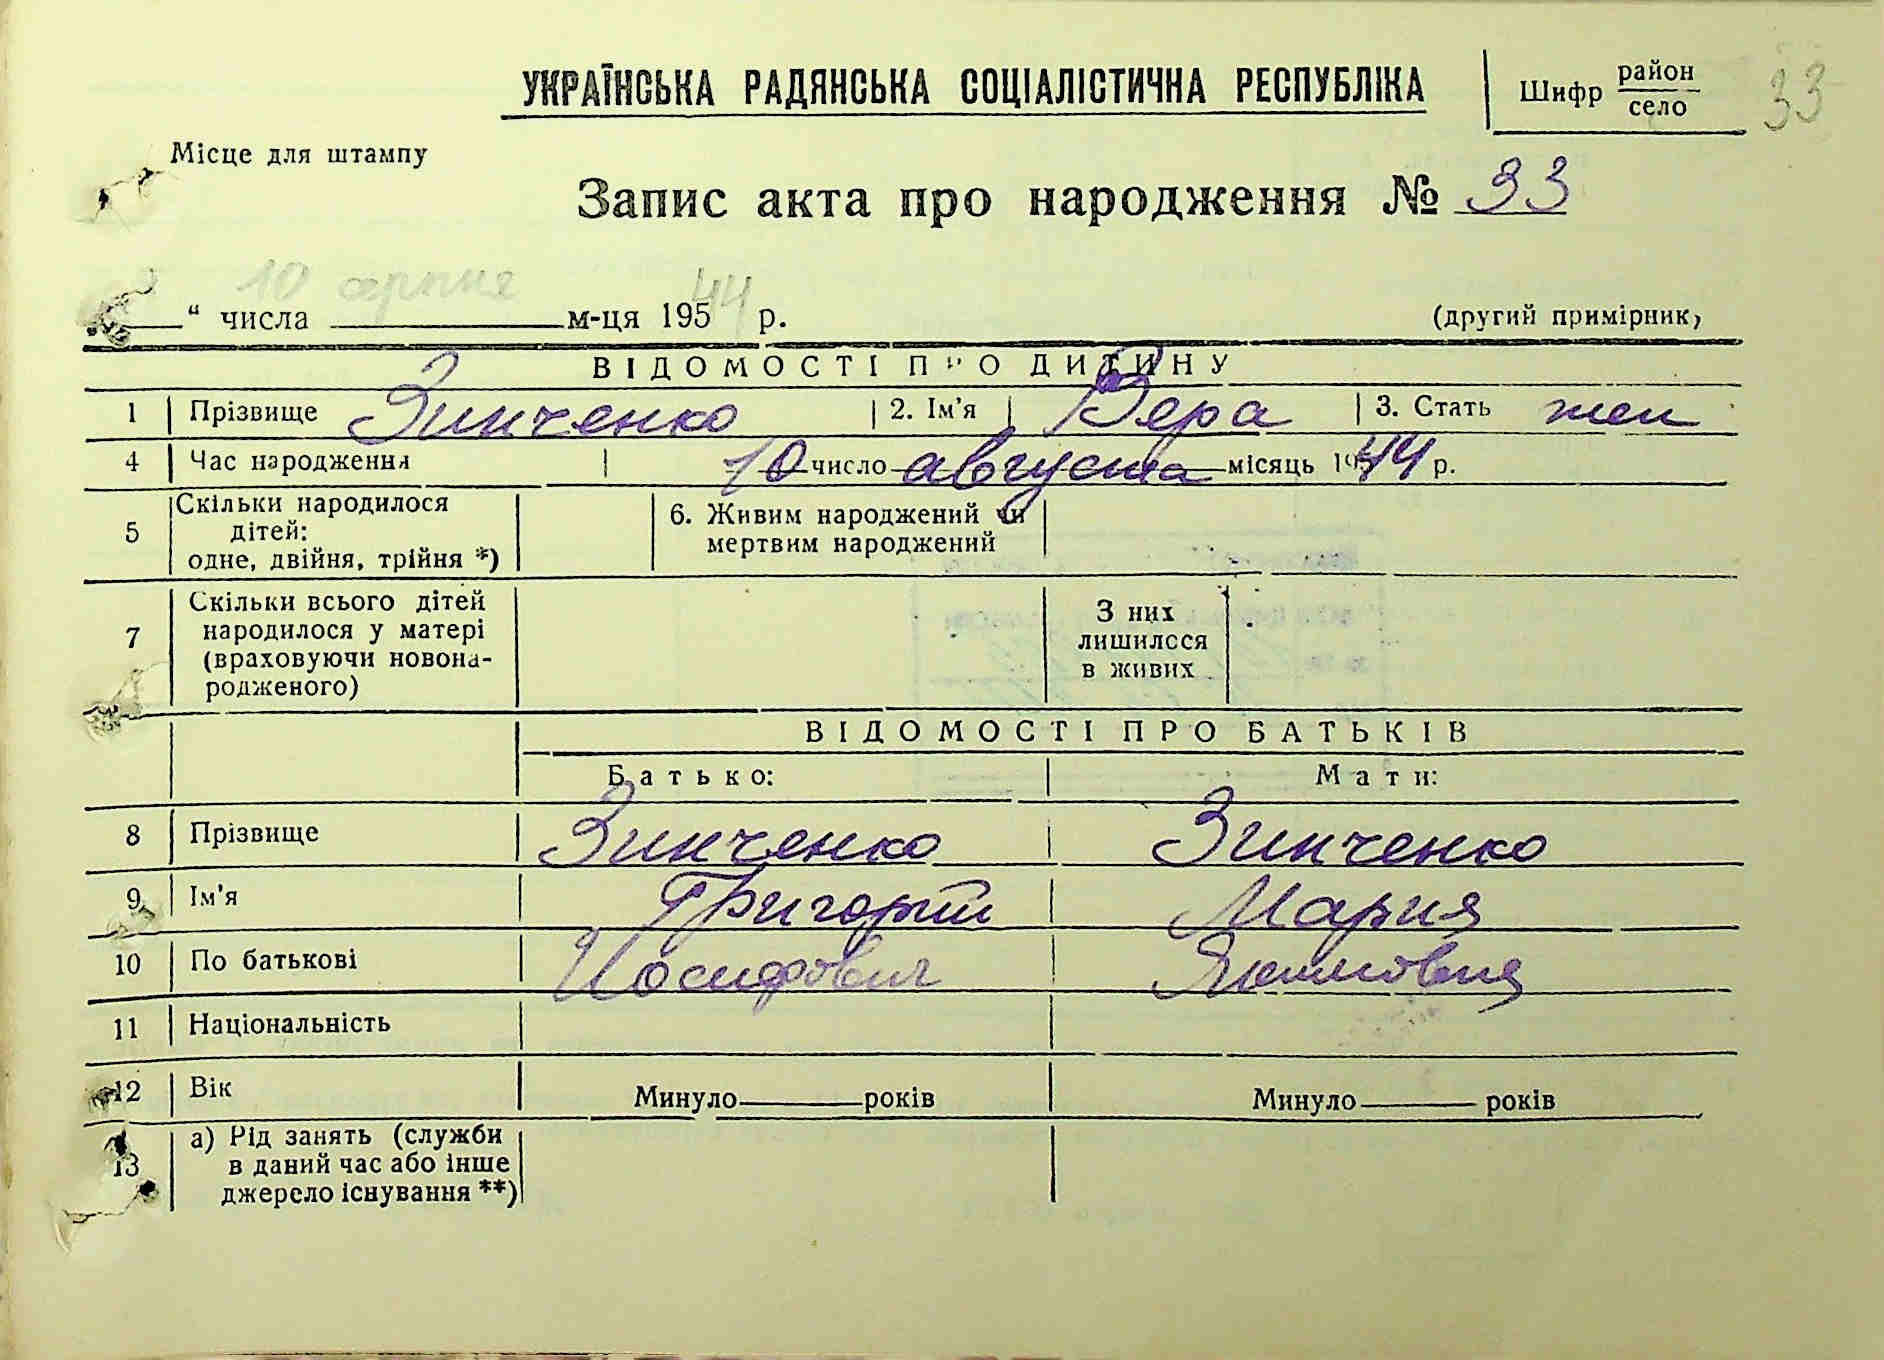 УКРАЇНСЬКА РАДЯНСЬКА СОЦІАЛІСТИЧНА РЕСПУБЛІКА
Шифр район
село
33
Місце для штампу
Запис акта про народження № 33
10 серпня 44
“ числа м-ця 195 р.
(другий примірник)
ВІДОМОСТІ ПРО ДИТИНУ
1 Прізвище Зинченко 2. Ім'я Вера 3. Стать жен
4 Час народження 10 число августа місяць 1944 р.
5 Скільки народилося
дітей:
одне, двійня, трійня *)
6. Живим народжений чи
мертвим народжений
7 Скільки всього дітей
народилося у матері
(враховуючи новона-
родженого)
З них
лишилося
в живих
ВІДОМОСТІ ПРО БАТЬКІВ
Батько: Мати:
8 Прізвище Зинченко Зинченко
9 Ім'я Григорий Мария
10 По батькові Иосифович Якимовна
11 Національність
12 Вік Минуло років Минуло років
13 а) Рід занять (служби
в даний час або інше
джерело існування **)